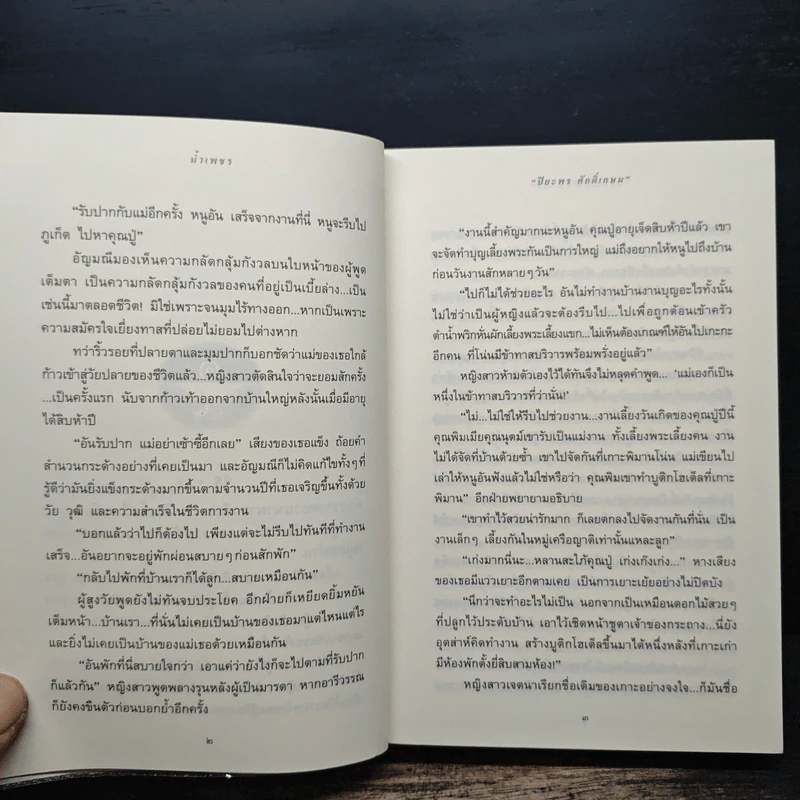 น้ำเพชร
“รับปากกับแม่อีกครั้ง หนูอัน เสร็จจากงานที่นี่ หนูจะรีบไป
ภูเก็ต ไปหาคุณปู่”
อัญมณีมองเห็นความกลัดกลุ้มกังวลบนใบหน้าของผู้พูด
เต็มตา เป็นความกลัดกลุ้มกังวลของคนที่อยู่เป็นเบี้ยล่าง...เป็น
เช่นนี้มาตลอดชีวิต! มิใช่เพราะจนมุมไร้ทางออก...หากเป็นเพราะ
ความสมัครใจเยี่ยงทาสที่ปล่อยไม่ยอมไปต่างหาก
ทว่าริ้วรอยที่ปลายตาและมุมปากก็บอกชัดว่าแม่ของเธอใกล้
ก้าวเข้าสู่วัยปลายของชีวิตแล้ว...หญิงสาวตัดสินใจว่าจะยอมสักครั้ง
...เป็นครั้งแรก นับจากก้าวเท้าออกจากบ้านใหญ่หลังนั้นเมื่อมีอายุ
ได้สิบห้าปี
“อันรับปาก แม่อย่าเซ้าซี้อีกเลย” เสียงของเธอแข็ง ถ้อยคำ
สำนวนกระด้างอย่างที่เคยเป็นมา และอัญมณีก็ไม่คิดแก้ไขทั้งๆ ที่
รู้ดีว่ามันยิ่งแข็งกระด้างมากขึ้นตามจำนวนปีที่เธอเจริญขึ้นทั้งด้วย
วัย วุฒิ และความสำเร็จในชีวิตการงาน
“บอกแล้วว่าไปก็ต้องไป เพียงแต่จะไม่รีบไปทันทีที่ทำงาน
เสร็จ...อันอยากจะอยู่พักผ่อนสบายๆ ก่อนสักพัก”
“กลับไปพักที่บ้านเราก็ได้ลูก...สบายเหมือนกัน”
ผู้สูงวัยพูดยังไม่ทันจบประโยค อีกฝ่ายก็เหยียดยิ้มหยัน
เต็มหน้า...บ้านเรา...ที่นั่นไม่เคยเป็นบ้านของเธอมาแต่ไหนแต่ไร
และยิ่งไม่เคยเป็นบ้านของแม่เธอด้วยเหมือนกัน
“อันพักที่นี่สบายใจกว่า เอาแค่ว่ายังไงก็จะไปตามที่รับปาก
ก็แล้วกัน” หญิงสาวพูดพลางรุนหลังผู้เป็นมารดา หากอารีวรรณ
ก็ยังคงขืนตัวก่อนบอกย้ำอีกครั้ง
๒
“ปิยะพร ศักดิ์เกษม”
“งานนี้สำคัญมากนะหนูอัน คุณปู่อายุเจ็ดสิบห้าปีแล้ว เขา
จะจัดทำบุญเลี้ยงพระกันเป็นการใหญ่ แม่ถึงอยากให้หนูไปถึงบ้าน
ก่อนวันงานสักหลายๆ วัน”
“ไปก็ไม่ได้ช่วยอะไร อันไม่ทำงานบ้านงานบุญอะไรทั้งนั้น
ไม่ใช่ว่าเป็นผู้หญิงแล้วจะต้องรีบไป...ไปเพื่อถูกต้อนเข้าครัว
ตำน้ำพริกหั่นผักเลี้ยงพระเลี้ยงแขก...ไม่เห็นต้องเกณฑ์ให้อันไปเกะกะ
อีกคน ที่โน่นมีข้าทาสบริวารพร้อมพรั่งอยู่แล้ว”
หญิงสาวห้ามตัวเองไว้ได้ทันจึงไม่หลุดคำพูด... ‘แม่เองก็เป็น
หนึ่งในข้าทาสบริวารที่ว่านั่น!’
“ไม่...ไม่ใช่ให้รีบไปช่วยงาน...งานเลี้ยงวันเกิดของคุณปู่ปีนี้
คุณพิมเมียคุณนุตม์เขารับเป็นแม่งาน ทั้งเลี้ยงพระเลี้ยงคน งาน
ไม่ได้จัดที่บ้านด้วยซ้ำ เขาไปจัดกันที่เกาะพิมานโน่น แม่เขียนไป
เล่าให้หนูอันฟังแล้วไม่ใช่หรือว่า คุณพิมเขาทำบูติกโฮเต็ลที่เกาะ
พิมาน” อีกฝ่ายพยายามอธิบาย
“เขาทำไว้สวยน่ารักมาก ก็เลยตกลงไปจัดงานกันที่นั่น เป็น
งานเล็กๆ เลี้ยงกันในหมู่เครือญาติเท่านั้นแหละลูก”
“เก่งมากนี่นะ...หลานสะใภ้คุณปู่ เก่งเก๊งเก่ง...” หางเสียง
ของเธอมีแววเยาะอีกตามเคย เป็นการเยาะเย้ยอย่างไม่ปิดบัง
“นึกว่าจะทำอะไรไม่เป็น นอกจากเป็นเหมือนดอกไม้สวยๆ
ที่ปลูกไว้ประดับบ้าน เอาไว้เชิดหน้าชูตาเจ้าของกระถาง...นี่ยัง
อุตส่าห์คิดทำงาน สร้างบูติกโฮเต็ลขึ้นมาได้หนึ่งหลังที่เกาะเก่า
มีห้องพักตั้งยี่สิบสามห้อง!”
หญิงสาวเจตนาเรียกชื่อเดิมของเกาะอย่างจงใจ...ก็มันชื่อ
๓